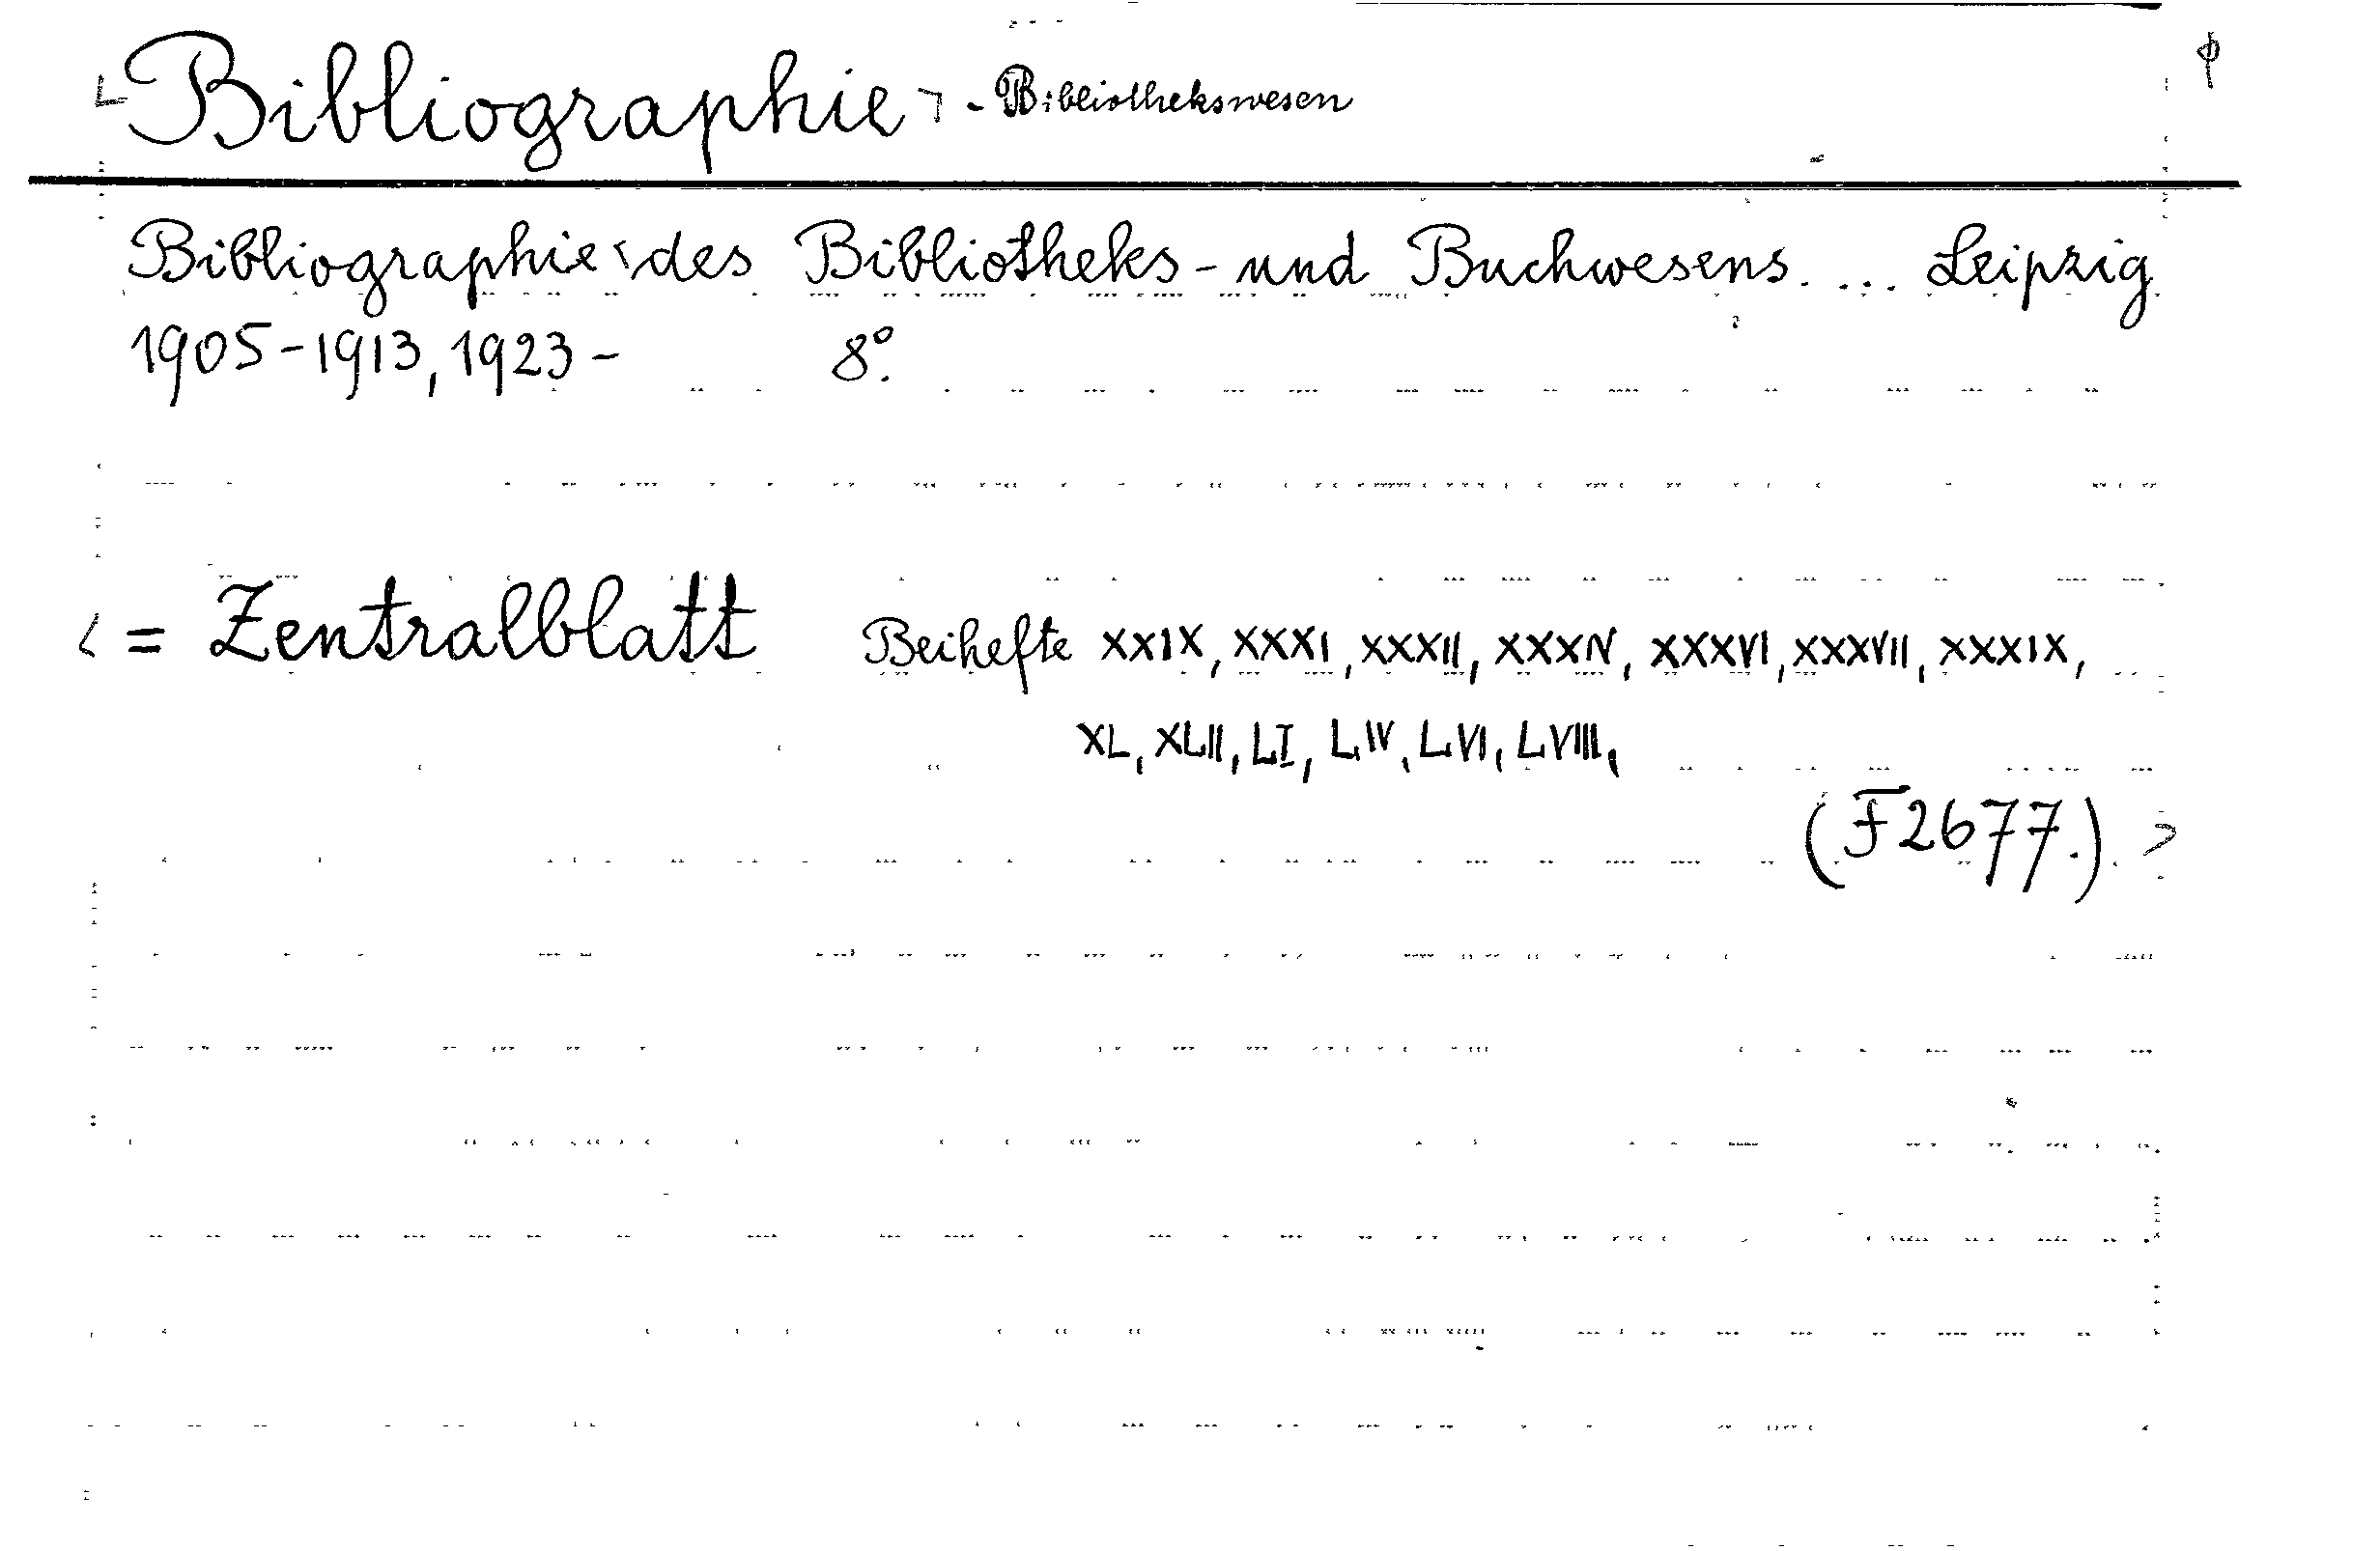 ⌞Bibliographie⌝ - Bibliothekswesen φ
Bibliographie des Bibliotheks- und Buchwesens. ... Leipzig
1905-1913, 1923- 8°.
< = Zentralblatt Beihefte XXIX, XXXI, XXXII, XXXIV, XXXVI, XXXVII, XXXIX,
XL, XLII, LI, LIV, LVI, LVIII,
(F2677.) >